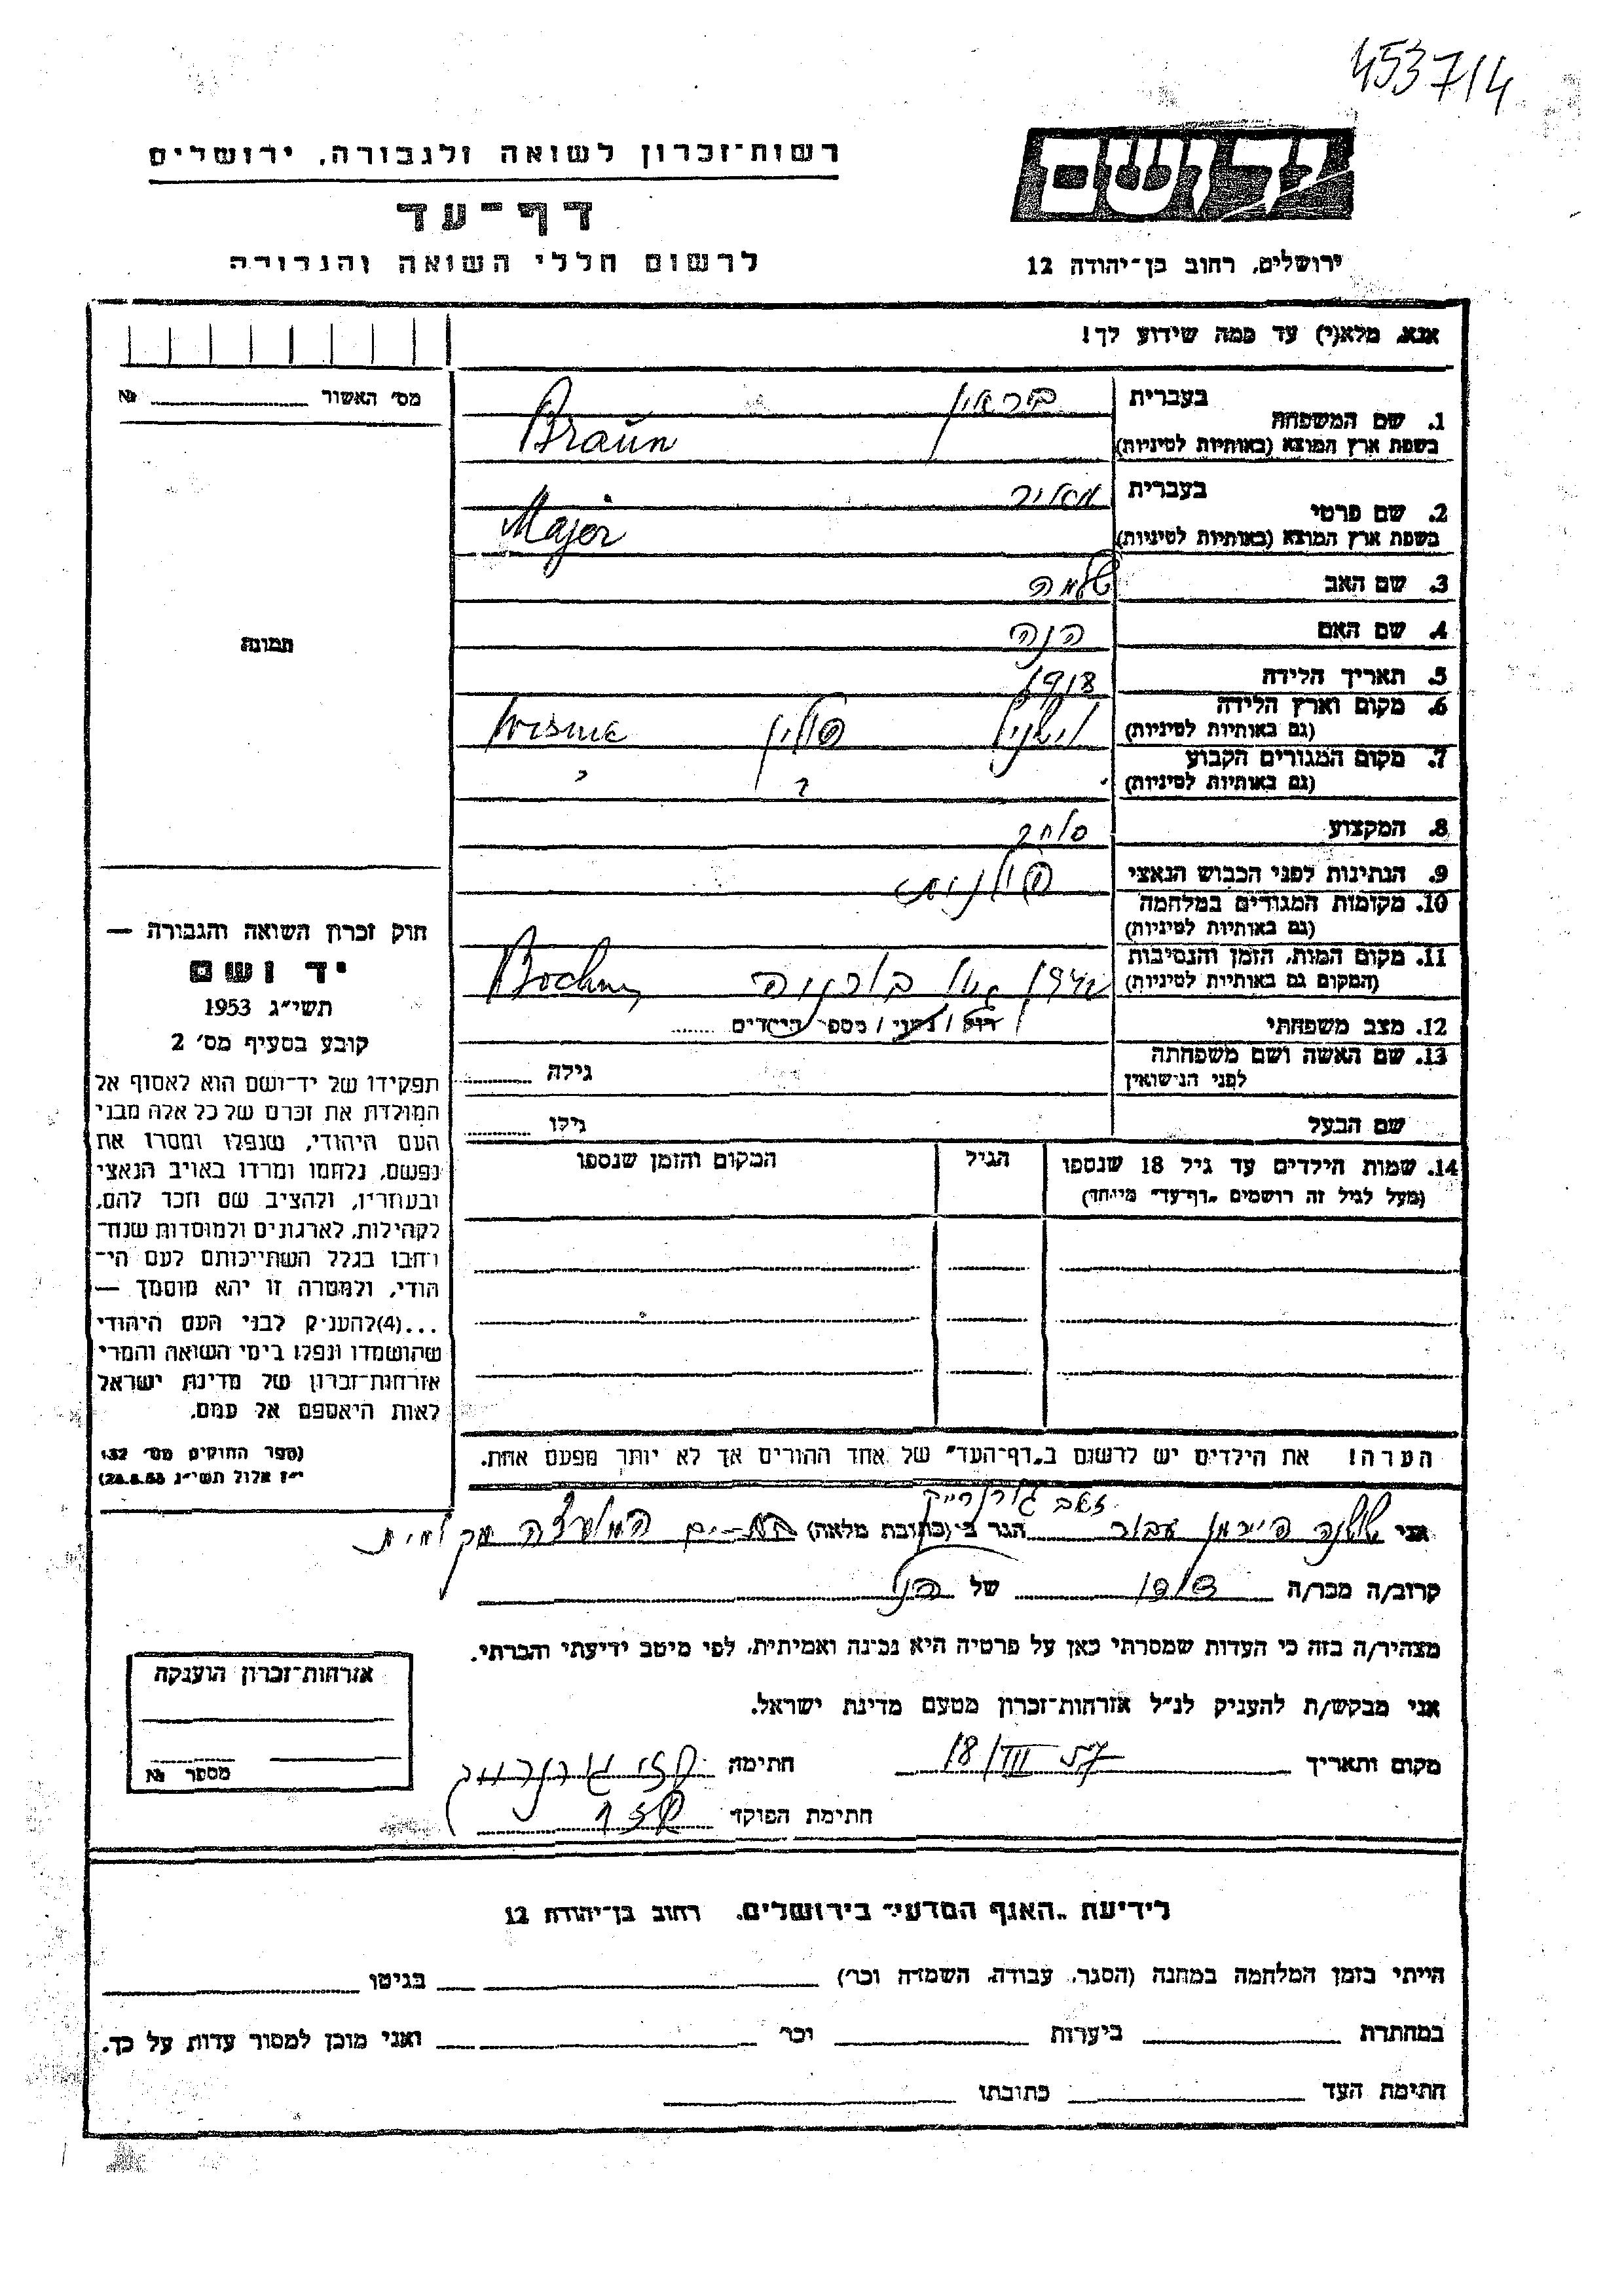 453714
רשות־זכרון לשואה ולגבורה, ירושלים
דף־עד
לרשום חללי השואה והגבורה
יד ושם
ירושלים, רחוב בן־יהודה 12
אנא, מלא(י) עד כמה שידוע לך!
מס׳ האשור № 
1. שם המשפחה בעברית בראון
בשפת ארץ המוצא (באותיות לטיניות) Braun
2. שם פרטי בעברית מאיר
בשפת ארץ המוצא (באותיות לטיניות) Major
3. שם האב שלמה
4. שם האם הנה
5. תאריך הלידה 1918
6. מקום וארץ הלידה
(גם באותיות לטיניות) פולין
7. מקום המגורים הקבוע
(גם באותיות לטיניות)
8. המקצוע סוחר
9. הנתינות לפני הכבוש הנאצי פולנית
10. מקומות המגורים במלחמה
(גם באותיות לטיניות)
11. מקום המות, הזמן והנסיבות
(המקום גם באותיות לטיניות) Bochny
12. מצב משפחתי רוק / נשוי / מספר הילדים
13. שם האשה ושם משפחתה
לפני הנישואין גילה
שם הבעל גילו
14. שמות הילדים עד גיל 18 שנספו הגיל המקום והזמן שנספו
(מעל לגיל זה רושמים „דף־עד״ מיוחד)
הערה! את הילדים יש לרשום ב„דף־העד״ של אחד ההורים אך לא יותר מפעם אחת.
תמונה
חוק זכרון השואה והגבורה —
יד ושם
תשי״ג 1953
קובע בסעיף מס׳ 2
תפקידו של יד־ושם הוא לאסוף אל
המולדת את זכרם של כל אלה מבני
העם היהודי, שנפלו ומסרו את
נפשם, נלחמו ומרדו באויב הנאצי
ובעוזריו, ולהציב שם וזכר להם,
לקהילות, לארגונים ולמוסדות שנח־
רבו בגלל השתייכותם לעם הי־
הודי, ולמטרה זו יהא מוסמך —
...(4) להעניק לבני העם היהודי
שהושמדו ונפלו בימי השואה והמרי
אזרחות־זכרון של מדינת ישראל
לאות היאספם אל עמם.
(ספר החוקים מס׳ 132,
י״ז אלול תשי״ג 28.8.53)
אני שושנה עבור הגר ב־(כתובת מלאה)
קרוב/ה מכר/ה של
מצהיר/ה בזה כי העדות שמסרתי כאן על פרטיה היא נכונה ואמיתית, לפי מיטב ידיעתי והכרתי.
אני מבקש/ת להעניק לנ״ל אזרחות־זכרון מטעם מדינת ישראל.
מקום ותאריך 18/III 57 חתימה
חתימת הפוקד
אזרחות־זכרון הוענקה
מספר №
לידיעת „האגף המדעי״ בירושלים, רחוב בן־יהודה 12
הייתי בזמן המלחמה במחנה (הסגר, עבודה, השמדה וכו׳) בגיטו
במחתרת ביערות וכו׳ ואני מוכן למסור עדות על כך.
חתימת העד כתובתו